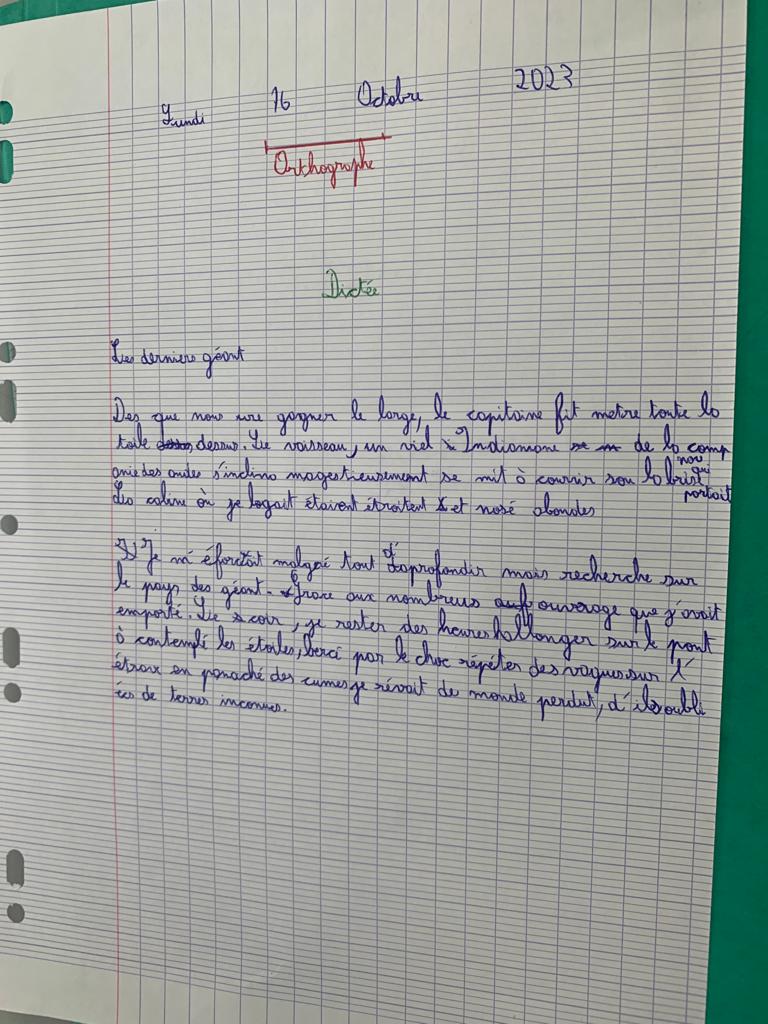 Lundi 16 Octobre 2023
Orthographe
Dictée
Les derniers géant
Des que nous ure gagner le large, le capitaine fit metre toute la
toile dessus. Le vaisseau, un viel Indiamane de la comp
anie des andes s'inclina magestieusement se mit à courrir sou la brise
nou qui portait
La caline où je logait étaient étroitent et nosé abondes
Je m'éforçait malgré tout d'aprofondir mais recherche sur
le pays des géant. Grace aux nombreus ouvrage que j'avait
emporté. Le soir, je rester des heures hallonger sur le pont
à contemplé les étoiles, berci par le choc répéter des vagues sur l'
étrave en panaché des cumes je révait de monde perdut, d'iles oubli
ées de terres inconues.